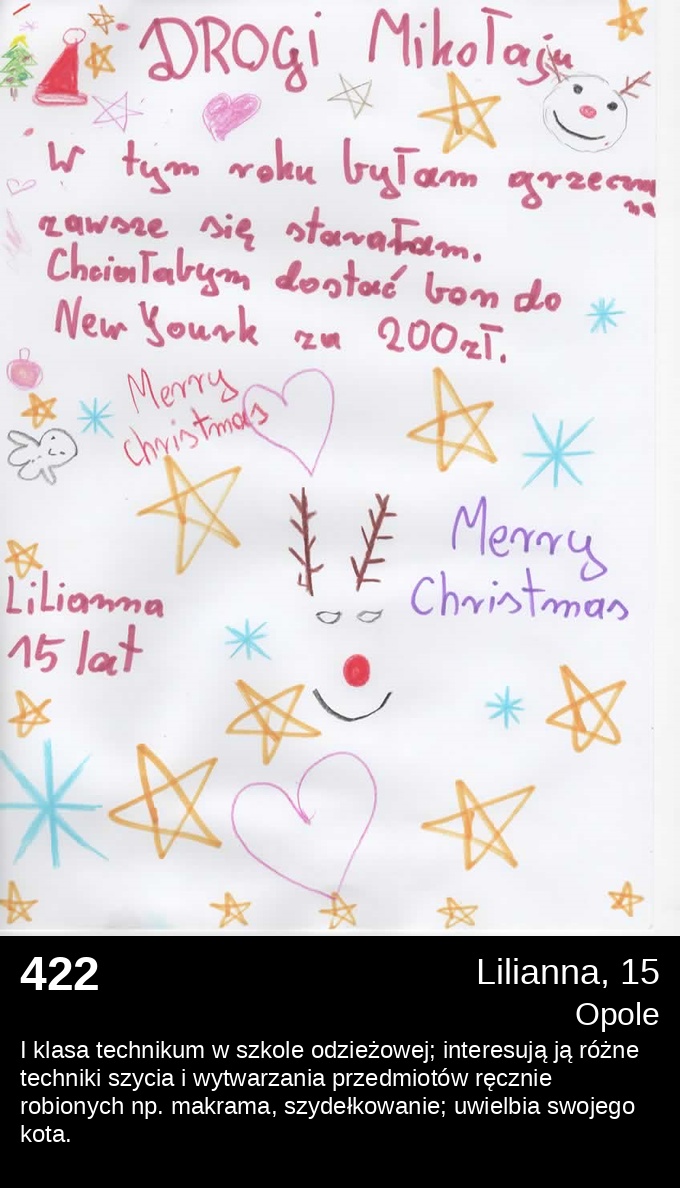 DROGI Mikołaju
W tym roku byłam grzeczna
zawsze się starałam.
Chciałabym dostać bon do
New Yourk za 200zł.
Merry
christmas
Merry
Christmas
Lilianna
15 lat
422
Lilianna, 15
Opole
I klasa technikum w szkole odzieżowej; interesują ją różne
techniki szycia i wytwarzania przedmiotów ręcznie
robionych np. makrama, szydełkowanie; uwielbia swojego
kota.